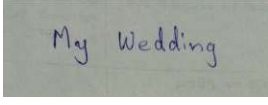 My Wedding